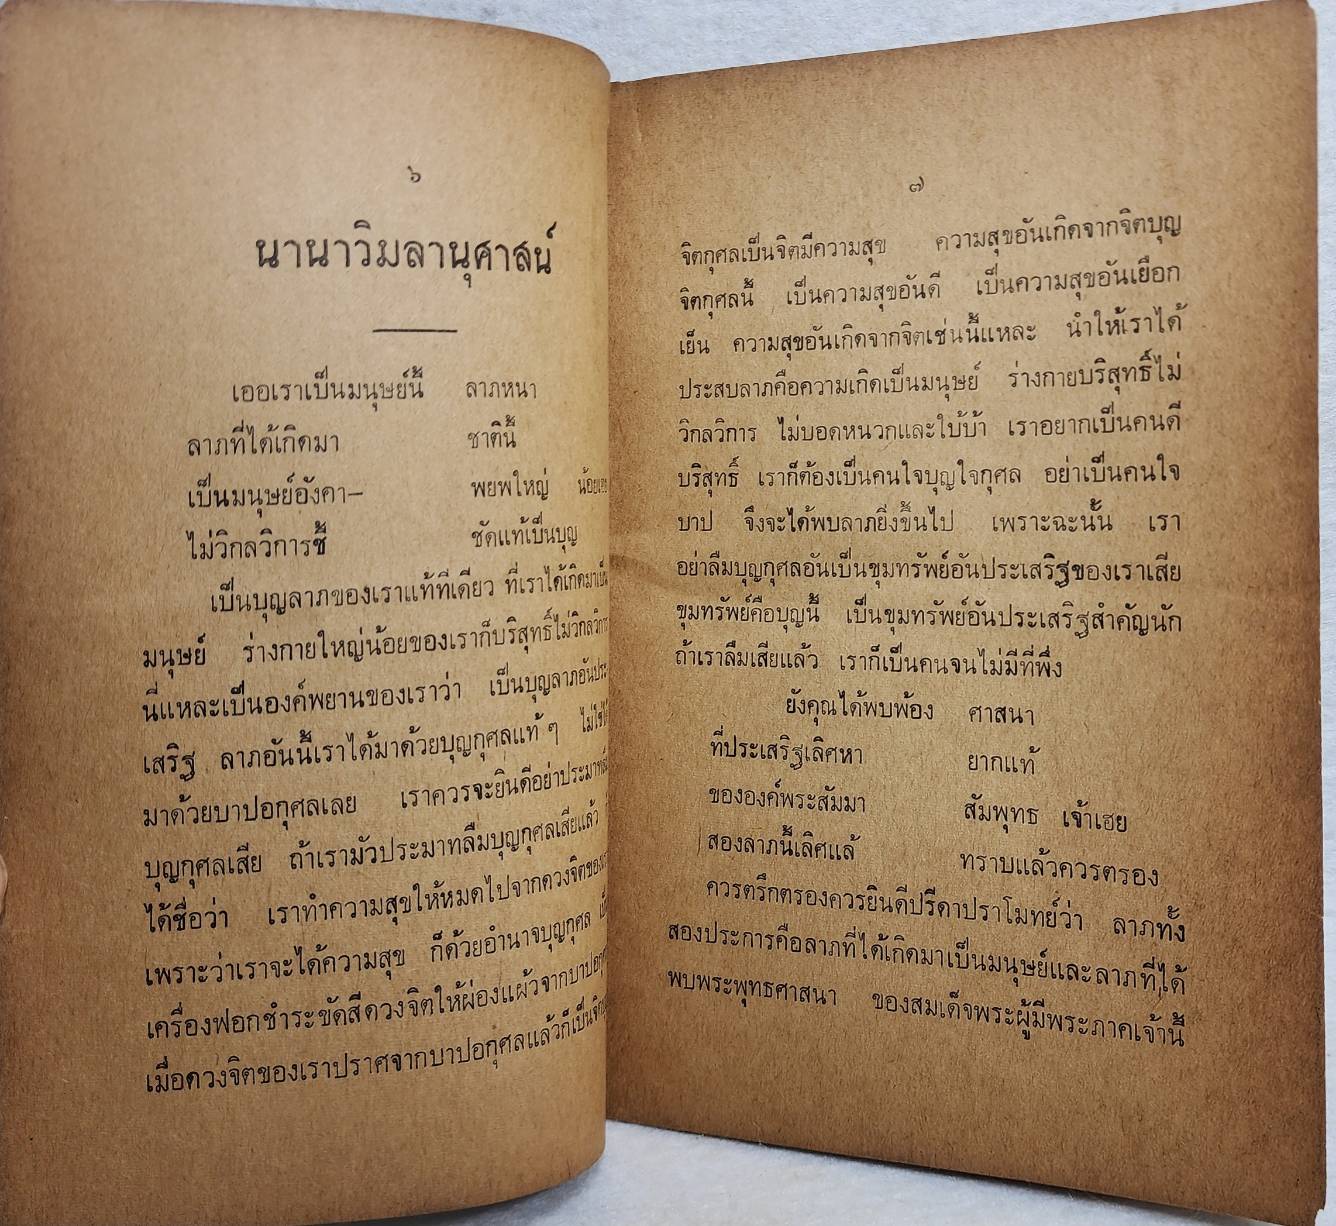 ๖
นานาวิมลานุศาสน์
เออเราเป็นมนุษย์นี้ ลาภหนา
ลาภที่ได้เกิดมา ชาตินี้
เป็นมนุษย์อังคา— พยพใหญ่ น้อย
ไม่วิกลวิการชี้ ชัดแท้เป็นบุญ
เป็นบุญลาภของเราแท้ทีเดียว ที่เราได้เกิดมา
มนุษย์ ร่างกายใหญ่น้อยของเราก็บริสุทธิ์ไม่วิกลวิการ
นี่แหละเป็นองค์พยานของเราว่า เป็นบุญลาภอันประ
เสริฐ ลาภอันนี้เราได้มาด้วยบุญกุศลแท้ ๆ ไม่ใช่ได้
มาด้วยบาปอกุศลเลย เราควรจะยินดีอย่าประมาท
บุญกุศลเสีย ถ้าเรามัวประมาทลืมบุญกุศลเสียแล้ว
ได้ชื่อว่า เราทำความสุขให้หมดไปจากดวงจิตของ
เพราะว่าเราจะได้ความสุข ก็ด้วยอำนาจบุญกุศล
เครื่องฟอกชำระขัดสีดวงจิตให้ผ่องแผ้วจากบาป
เมื่อดวงจิตของเราปราศจากบาปอกุศลแล้วก็เป็น
๗
จิตกุศลเป็นจิตมีความสุข ความสุขอันเกิดจากจิตบุญ
จิตกุศลนี้ เป็นความสุขอันดี เป็นความสุขอันเยือก
เย็น ความสุขอันเกิดจากจิตเช่นนี้แหละ นำให้เราได้
ประสบลาภคือความเกิดเป็นมนุษย์ ร่างกายบริสุทธิ์ไม่
วิกลวิการ ไม่บอดหนวกและใบ้บ้า เราอยากเป็นคนดี
บริสุทธิ์ เราก็ต้องเป็นคนใจบุญใจกุศล อย่าเป็นคนใจ
บาป จึงจะได้พบลาภยิ่งขึ้นไป เพราะฉะนั้น เรา
อย่าลืมบุญกุศลอันเป็นขุมทรัพย์อันประเสริฐของเราเสีย
ขุมทรัพย์คือบุญนี้ เป็นขุมทรัพย์อันประเสริฐสำคัญนัก
ถ้าเราลืมเสียแล้ว เราก็เป็นคนจนไม่มีที่พึ่ง
ยังคุณได้พบพ้อง ศาสนา
ที่ประเสริฐเลิศหา ยากแท้
ขององค์พระสัมมา สัมพุทธ เจ้าเฮย
สองลาภนี้เลิศแล้ ทราบแล้วควรตรอง
ควรตรึกตรองควรยินดีปรีดาปราโมทย์ว่า ลาภทั้ง
สองประการคือลาภที่ได้เกิดมาเป็นมนุษย์และลาภที่ได้
พบพระพุทธศาสนา ของสมเด็จพระผู้มีพระภาคเจ้านี้